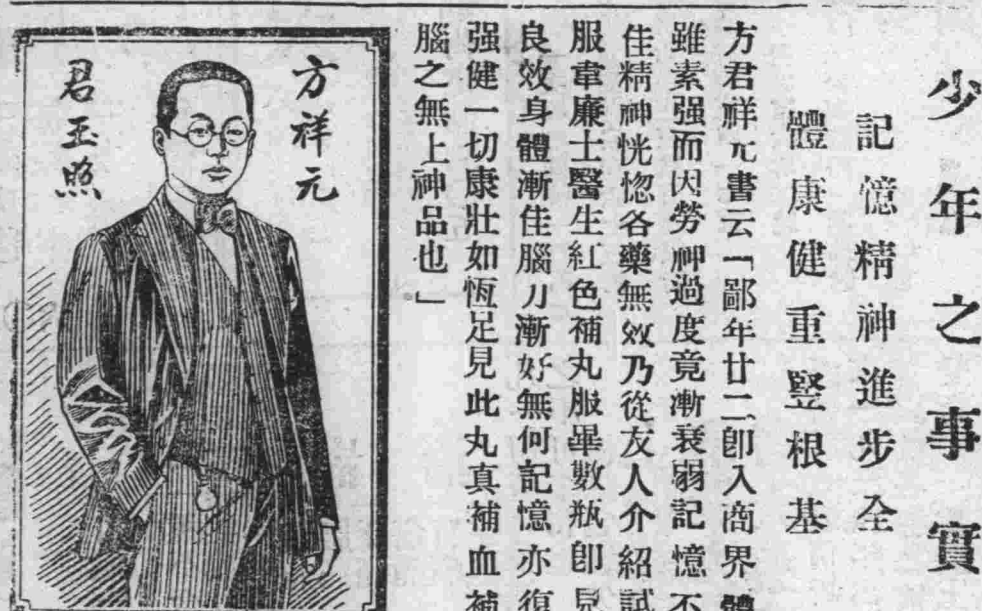 少年之事實
記憶精神進步全
體康健重豎根基
方君祥元書云「鄙年廿二卽入商界體
雖素强而因勞神過度竟漸衰弱記憶不
佳精神恍惚各藥無效乃從友人介紹試
服韋廉士醫生紅色補丸服畢數瓶卽見
良效身體漸佳腦力漸好無何記憶亦復
强健一切康壯如恆足見此丸真補血補
腦之無上神品也」
方祥元
君玉照